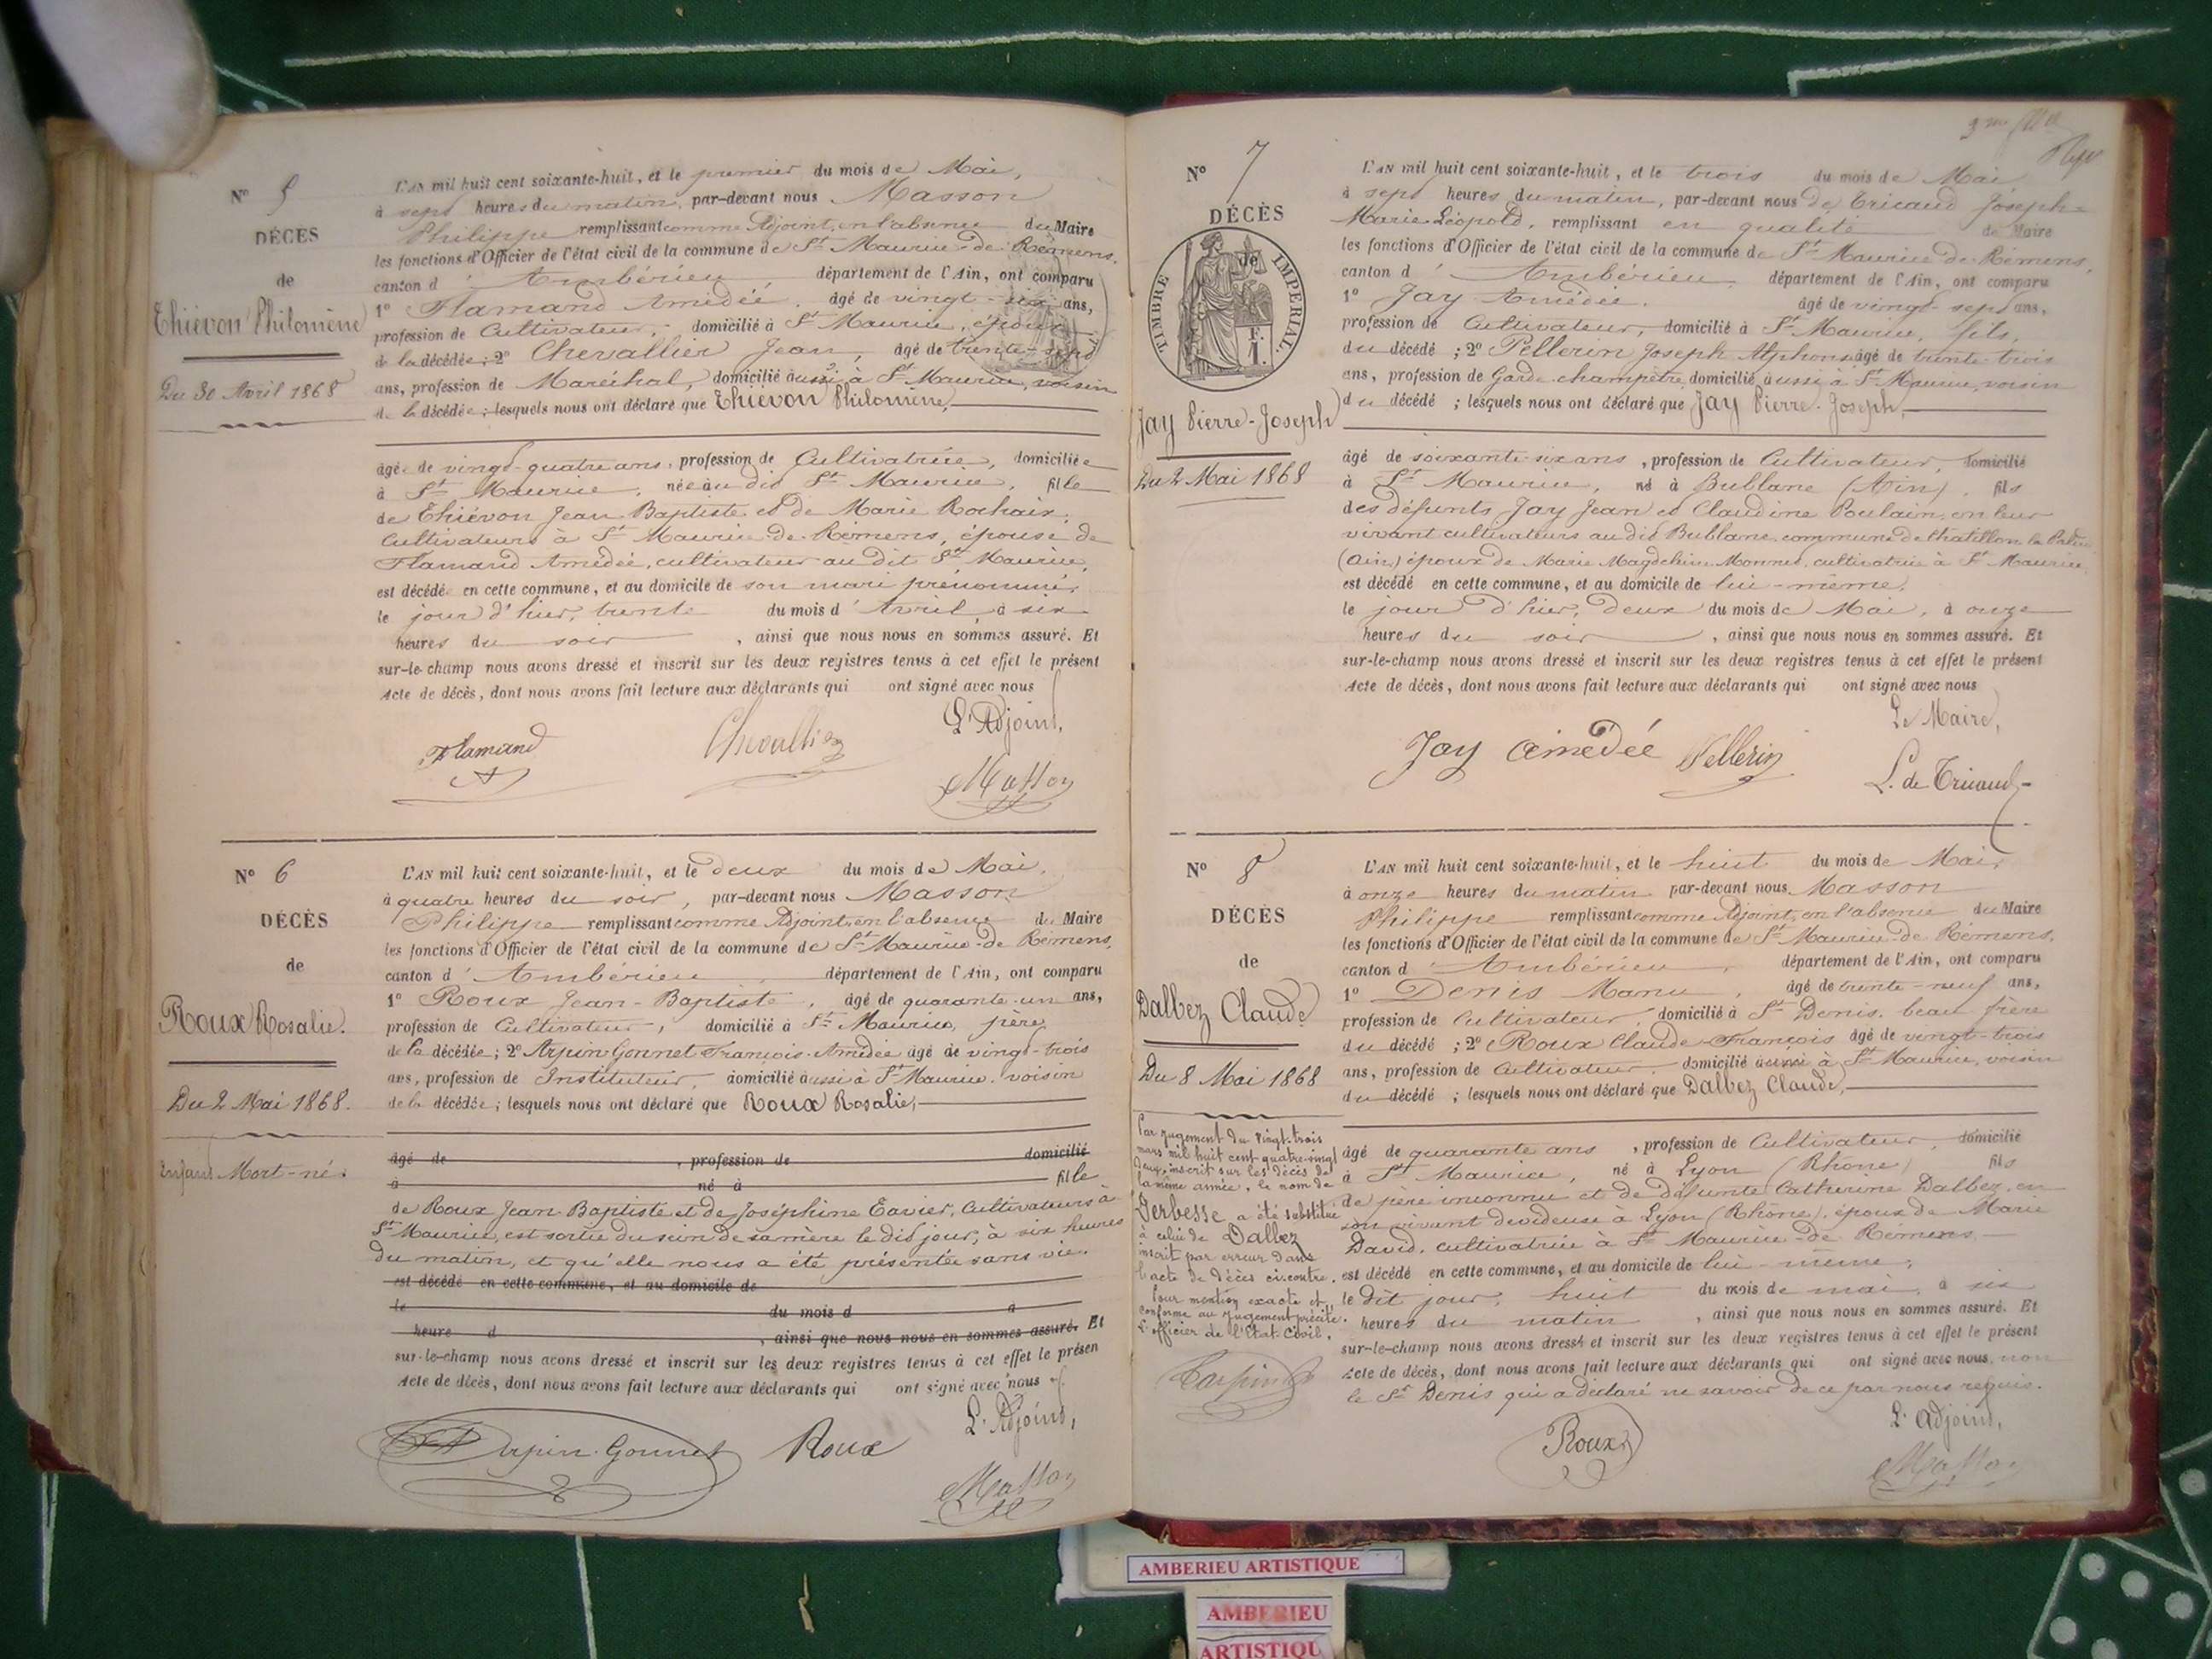 N° 5
DÉCÈS
de
Thiévon Philomène
Du 30 Avril 1868
L'AN mil huit cent soixante-huit, et le premier du mois de Mai,
à sept heures du matin, par-devant nous Masson
Philippe remplissant comme Adjoint, en l'absence du Maire
les fonctions d'Officier de l'état civil de la commune de St Maurice de Rémens,
canton d'Ambérieu, département de l'Ain, ont comparu
1° Flamand Amédée, âgé de vingt-six ans,
profession de Cultivateur, domicilié à St Maurice, époux
de la décédée; 2° Chevallier Jean, âgé de trente-sept
ans, profession de Maréchal, domicilié aussi à St Maurice, voisin
de la décédée; lesquels nous ont déclaré que Thiévon Philomène,
âgée de vingt-quatre ans, profession de Cultivatrice, domiciliée
à St Maurice, née au dit St Maurice, fille
de Thiévon Jean-Baptiste et de Marie Rochaix,
cultivateurs à St Maurice-de-Rémens, épouse de
Flamand Amédée, cultivateur au dit St Maurice,
est décédée en cette commune, et au domicile de son mari prénommé,
le jour d'hier, trente du mois d'Avril, à six
heures du soir, ainsi que nous nous en sommes assuré. Et
sur-le-champ nous avons dressé et inscrit sur les deux registres tenus à cet effet le présent
Acte de décès, dont nous avons fait lecture aux déclarants qui ont signé avec nous
L'Adjoint,
Flamand Chevallier
Masson
N° 6
DÉCÈS
de
Roux Rosalie.
Du 2 Mai 1868.
Enfant Mort-né.
L'AN mil huit cent soixante-huit, et le deux du mois de Mai,
à quatre heures du soir, par-devant nous Masson
Philippe remplissant comme Adjoint, en l'absence du Maire
les fonctions d'Officier de l'état civil de la commune de St Maurice-de Rémens,
canton d'Ambérieu, département de l'Ain, ont comparu
1° Roux Jean-Baptiste, âgé de quarante-un ans,
profession de Cultivateur, domicilié à St Maurice, père
de la décédée; 2° Arpin Gonnet François-Amédée âgé de vingt-trois
ans, profession de Instituteur, domicilié aussi à St Maurice, voisin
de la décédée; lesquels nous ont déclaré que Roux Rosalie,
âgé de , profession de domicilié
à né à fille
de Roux Jean-Baptiste et de Joséphine Cavier, Cultivateurs à
St Maurice, est sortie du sein de sa mère le dit jour, à six heures
du matin, et qu'elle nous a été présentée sans vie.
est décédé en cette commune, et au domicile de
le du mois d à
heure d , ainsi que nous nous en sommes assuré. Et
sur-le-champ nous avons dressé et inscrit sur les deux registres tenus à cet effet le présen
Acte de décès, dont nous avons fait lecture aux déclarants qui ont signé avec nous
L'Adjoint,
Arpin-Gonnet Roux
Masson
N° 7
DÉCÈS
de
TIMBRE IMPÉRIAL.
Jay Pierre-Joseph
Du 2 Mai 1868
L'AN mil huit cent soixante-huit, et le trois du mois de Mai
à sept heures du matin, par-devant nous de Tricaud Joseph-
Marie-Léopold, remplissant en qualité de Maire
les fonctions d'Officier de l'état civil de la commune de St Maurice de Rémens,
canton d'Ambérieu, département de l'Ain, ont comparu
1° Jay Amédée, âgé de vingt-sept ans,
profession de Cultivateur, domicilié à St Maurice, fils
du décédé; 2° Pellerin Joseph Alphonse âgé de trente-trois
ans, profession de Garde-champêtre, domicilié aussi à St Maurice, voisin
du décédé; lesquels nous ont déclaré que Jay Pierre-Joseph,
âgé de soixante-six ans, profession de Cultivateur, domicilié
à St Maurice, né à Bublane (Ain), fils
des défunts Jay Jean et Claudine Poulain, en leur
vivant cultivateurs au dit Bublane, commune de Chatillon la Palud
(Ain) époux de Marie Magdeleine Monnet, cultivatrice à St Maurice
est décédé en cette commune, et au domicile de lui-même,
le jour d'hier, deux du mois de Mai, à onze
heures du soir, ainsi que nous nous en sommes assuré. Et
sur-le-champ nous avons dressé et inscrit sur les deux registres tenus à cet effet le présent
Acte de décès, dont nous avons fait lecture aux déclarants qui ont signé avec nous
Le Maire,
Jay Amédée Pellerin
L. de Tricaud
N° 8
DÉCÈS
de
Dalbez Claude
Du 8 Mai 1868
Par jugement du vingt-trois
mars mil huit cent quatre-vingt
deux, inscrit sur les décès de
la même année, le nom de
Gerbesse a été substitué
à celui de Dalbez
inscrit par erreur dans
l'acte de décès ci-contre.
Pour mention exacte et
conforme au jugement précité.
L'officier de l'Etat Civil,
L'AN mil huit cent soixante-huit, et le huit du mois de Mai,
à onze heures du matin par-devant nous Masson
Philippe remplissant comme Adjoint, en l'absence du Maire
les fonctions d'Officier de l'état civil de la commune de St Maurice-de Rémens,
canton d'Ambérieu, département de l'Ain, ont comparu
1° Denis Manu, âgé de trente-neuf ans,
profession de Cultivateur, domicilié à St Denis, beau frère
du décédé; 2° Roux Claude-François âgé de vingt-trois
ans, profession de Cultivateur, domicilié aussi à St Maurice, voisin
du décédé; lesquels nous ont déclaré que Dalbez Claude,
âgé de quarante ans, profession de Cultivateur, domicilié
à St Maurice, né à Lyon (Rhône) fils
de père inconnu et de défunte Catherine Dalbez, en
son vivant devideuse à Lyon (Rhône), époux de Marie
David, cultivatrice à St Maurice-de Rémens
est décédé en cette commune, et au domicile de lui-même,
le dit jour, huit du mois de mai, à six
heures du matin, ainsi que nous nous en sommes assuré. Et
sur-le-champ nous avons dressé et inscrit sur les deux registres tenus à cet effet le présent
Acte de décès, dont nous avons fait lecture aux déclarants qui ont signé avec nous, non
le Sr Denis qui a déclaré ne savoir de ce par nous requis.
L'Adjoint,
Roux
Masson
AMBERIEU ARTISTIQUE
AMBERIEU
ARTISTIQU